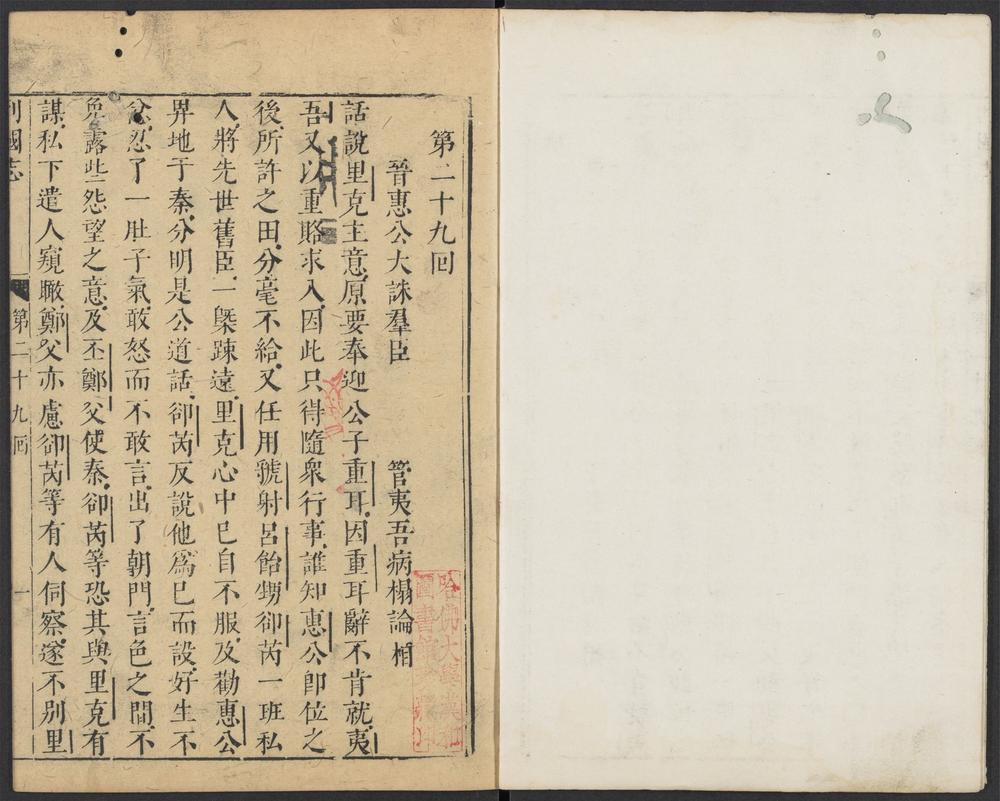 第二十九回
晉惠公大誅羣臣　管夷吾病榻論相
話說里克主意原要奉迎公子重耳因重耳辭不肯就夷
吾又以重賂求入因此只得隨衆行事誰知惠公卽位之
後所許之田分毫不給又任用虢射呂飴甥卻芮一班私
人將先世舊臣一槩踈遠里克心中已自不服及勸惠公
畀地于秦分明是公道話卻芮反說他爲已而設好生不
忿忍了一肚子氣敢怒而不敢言出了朝門言色之間不
免露些怨望之意及丕鄭父使秦卻芮等恐其與里克有
謀私下遣人窺瞰鄭父亦慮卻芮等有人伺察遂不別里
列國志　第二十九回　一
哈佛大學漢和圖書館珍藏印